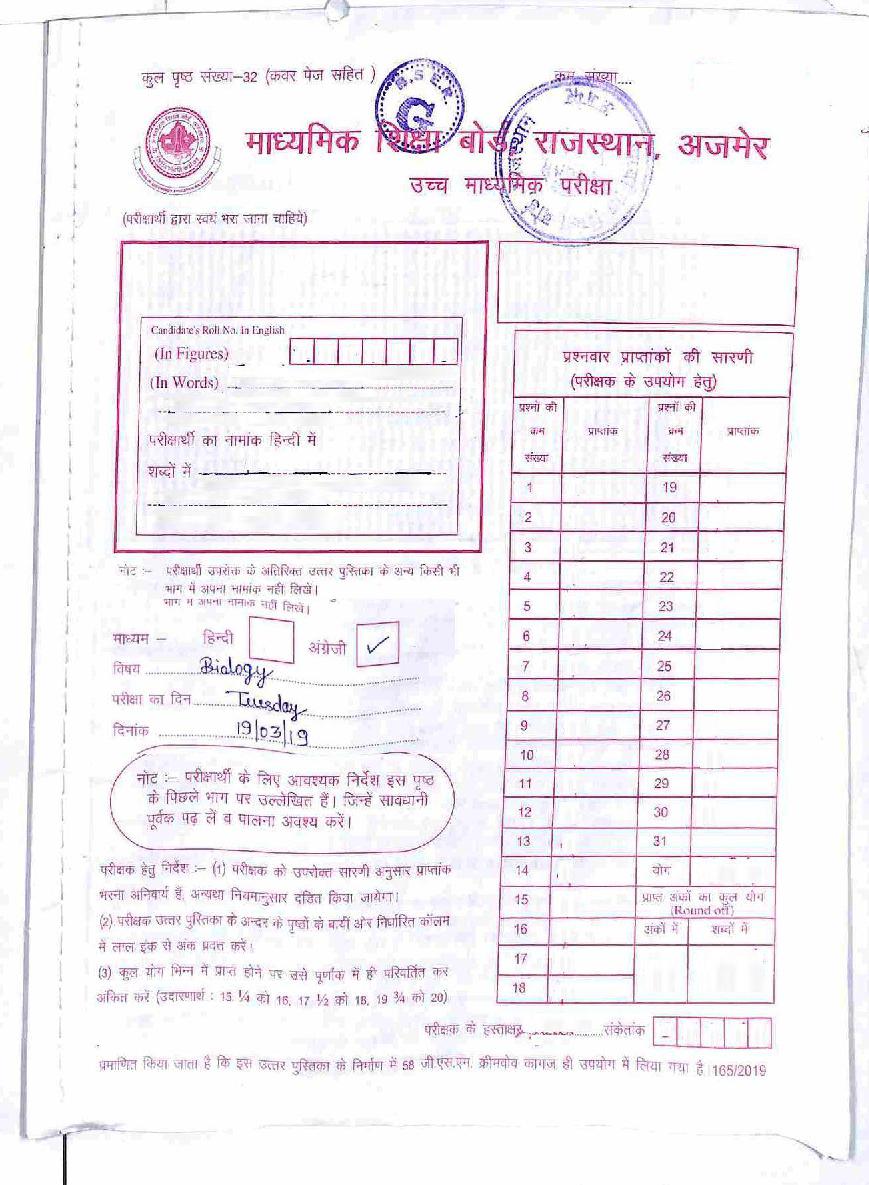 कुल पृष्ठ संख्या-32 (कवर पेज सहित )
क्रम संख्या....
B.S.E.R.
G
माध्यमिक शिक्षा बोर्ड राजस्थान, अजमेर
उच्च माध्यमिक परीक्षा
(परीक्षार्थी द्वारा स्वयं भरा जाना चाहिये)
Candidate's Roll No. in English
(In Figures)
(In Words)
परीक्षार्थी का नामांक हिन्दी में
शब्दों में
नोट :- परीक्षार्थी उपरोक्त के अतिरिक्त उत्तर पुस्तिका के अन्य किसी भी
भाग में अपना नामांक नहीं लिखें।
भाग में अपना नामांक नहीं लिखें।
माध्यम – हिन्दी अंग्रेजी ✓
विषय Biology
परीक्षा का दिन Tuesday
दिनांक 19/03/19
नोट :- परीक्षार्थी के लिए आवश्यक निर्देश इस पृष्ठ
के पिछले भाग पर उल्लेखित हैं। जिन्हें सावधानी
पूर्वक पढ़ लें व पालना अवश्य करें।
परीक्षक हेतु निर्देश :- (1) परीक्षक को उपरोक्त सारणी अनुसार प्राप्तांक
भरना अनिवार्य है, अन्यथा नियमानुसार दंडित किया जायेगा।
(2) परीक्षक उत्तर पुस्तिका के अन्दर के पृष्ठों के बायीं ओर निर्धारित कॉलम
में लाल इंक से अंक प्रदत्त करें।
(3) कुल योग भिन्न में प्राप्त होने पर उसे पूर्णांक में ही परिवर्तित कर
अंकित करें (उदाहरणार्थ : 15 ¼ को 16, 17 ½ को 18, 19 ¾ को 20)
प्रश्नवार प्राप्तांकों की सारणी
(परीक्षक के उपयोग हेतु)
प्रश्नों की प्रश्नों की
क्रम प्राप्तांक क्रम प्राप्तांक
संख्या संख्या
1 19
2 20
3 21
4 22
5 23
6 24
7 25
8 26
9 27
10 28
11 29
12 30
13 31
14 योग
15 प्राप्त अंकों का कुल योग
(Round off)
16 अंकों में शब्दों में
17
18
परीक्षक के हस्ताक्षर संकेतांक
प्रमाणित किया जाता है कि इस उत्तर पुस्तिका के निर्माण में 58 जी.एस.एम. क्रीमवोव कागज ही उपयोग में लिया गया है।165/2019